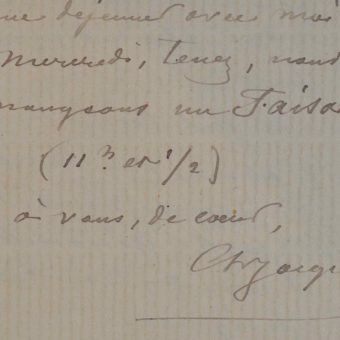 déjeuner avec moi
Mercredi, tenez, nous
mangeons un Faisa
(11h. et 1/2)
à vous, de cœur,
Ch Jacqu